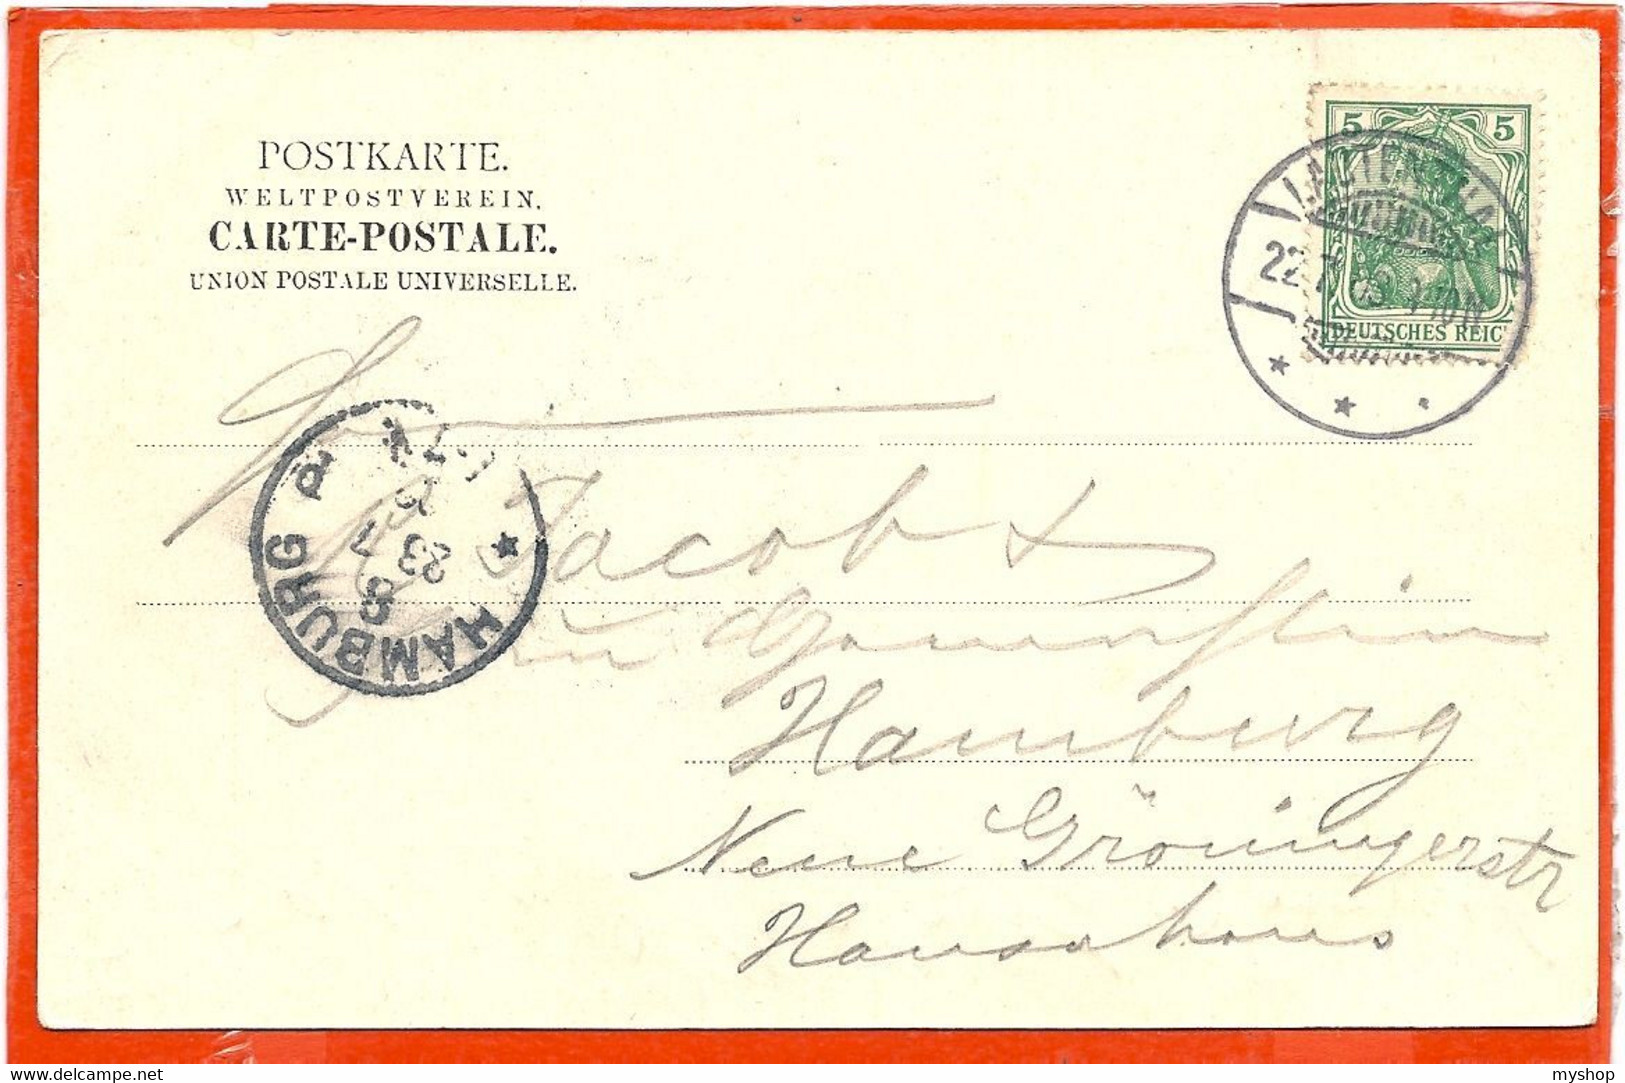 POSTKARTE.
WELTPOSTVEREIN.
CARTE-POSTALE.
UNION POSTALE UNIVERSELLE.
5 5
LAUTENTHAL
22.7. 9-10N
DEUTSCHES REIC
HAMBURG
23
7
Jacob
Hamburg
Neue Gröningerstr
Hansahaus
delcampe.net
myshop